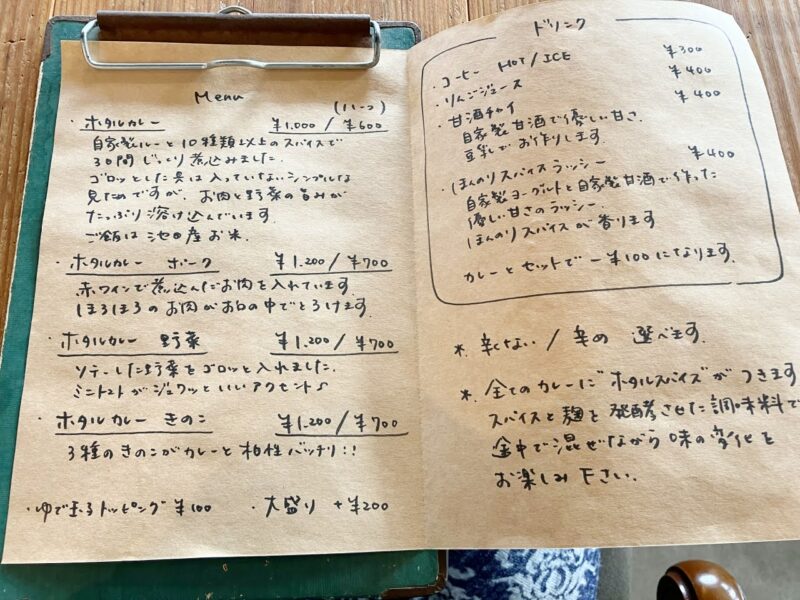 Menu
(ハーフ)
・ホタルカレー ¥1.000 / ¥600
自家製ルーと10種類以上のスパイスで
3日間じっくり煮込みました。
ゴロッとした具は入っていないシンプルな
見ためですが、お肉と野菜の旨みが
たっぷり溶け込んでいます。
ご飯は池田産お米.
・ホタルカレー ポーク ¥1.200 / ¥700
赤ワインで煮込んだお肉を入れています.
ほろほろのお肉がお口の中でとろけます.
・ホタルカレー 野菜 ¥1.200 / ¥700
ソテーした野菜をゴロッと入れました.
ミニトマトがジュワッといいアクセント♪
・ホタルカレー きのこ ¥1.200 / ¥700
3種のきのこがカレーと相性バッチリ!!
・ゆで玉子トッピング ¥100 ・大盛り +¥200
ドリンク
・コーヒー HOT / ICE ¥300
・りんごジュース ¥400
・甘酒チャイ ¥400
自家製甘酒で優しい甘さ.
豆乳でお作りします.
・ほんのりスパイスラッシー ¥400
自家製ヨーグルトと自家製甘酒で作った
優しい甘さのラッシー.
ほんのりスパイスが香ります
カレーとセットで -¥100になります.
*. 辛くない / 辛め 選べます.
*. 全てのカレーに"ホタルスパイス"がつきます
スパイスと麹を発酵させた調味料で
途中で混ぜながら味の変化を
お楽しみ下さい.